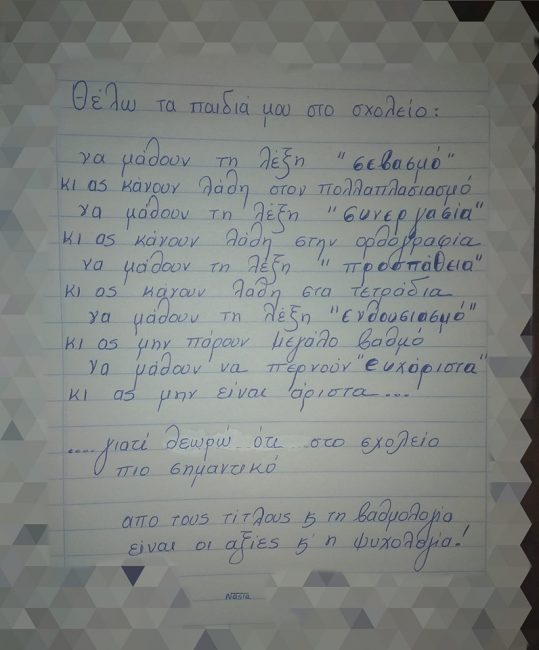 Θέλω τα παιδιά μου στο σχολείο:
να μάθουν τη λέξη "σεβασμό"
κι ας κάνουν λάθη στον πολλαπλασιασμό
να μάθουν τη λέξη "συνεργασία"
κι ας κάνουν λάθη στην ορθογραφία
να μάθουν τη λέξη "προσπάθεια"
κι ας κάνουν λάθη στα τετράδια
να μάθουν τη λέξη "ενθουσιασμό"
κι ας μην πάρουν μεγάλο βαθμό
να μάθουν να περνούν "ευχάριστα"
κι ας μην είναι άριστα...
....γιατί θεωρώ ότι στο σχολείο
πιο σημαντικό
απο τους τίτλους ϗ τη βαθμολογία
είναι οι αξίες ϗ η ψυχολογία!
Nasia